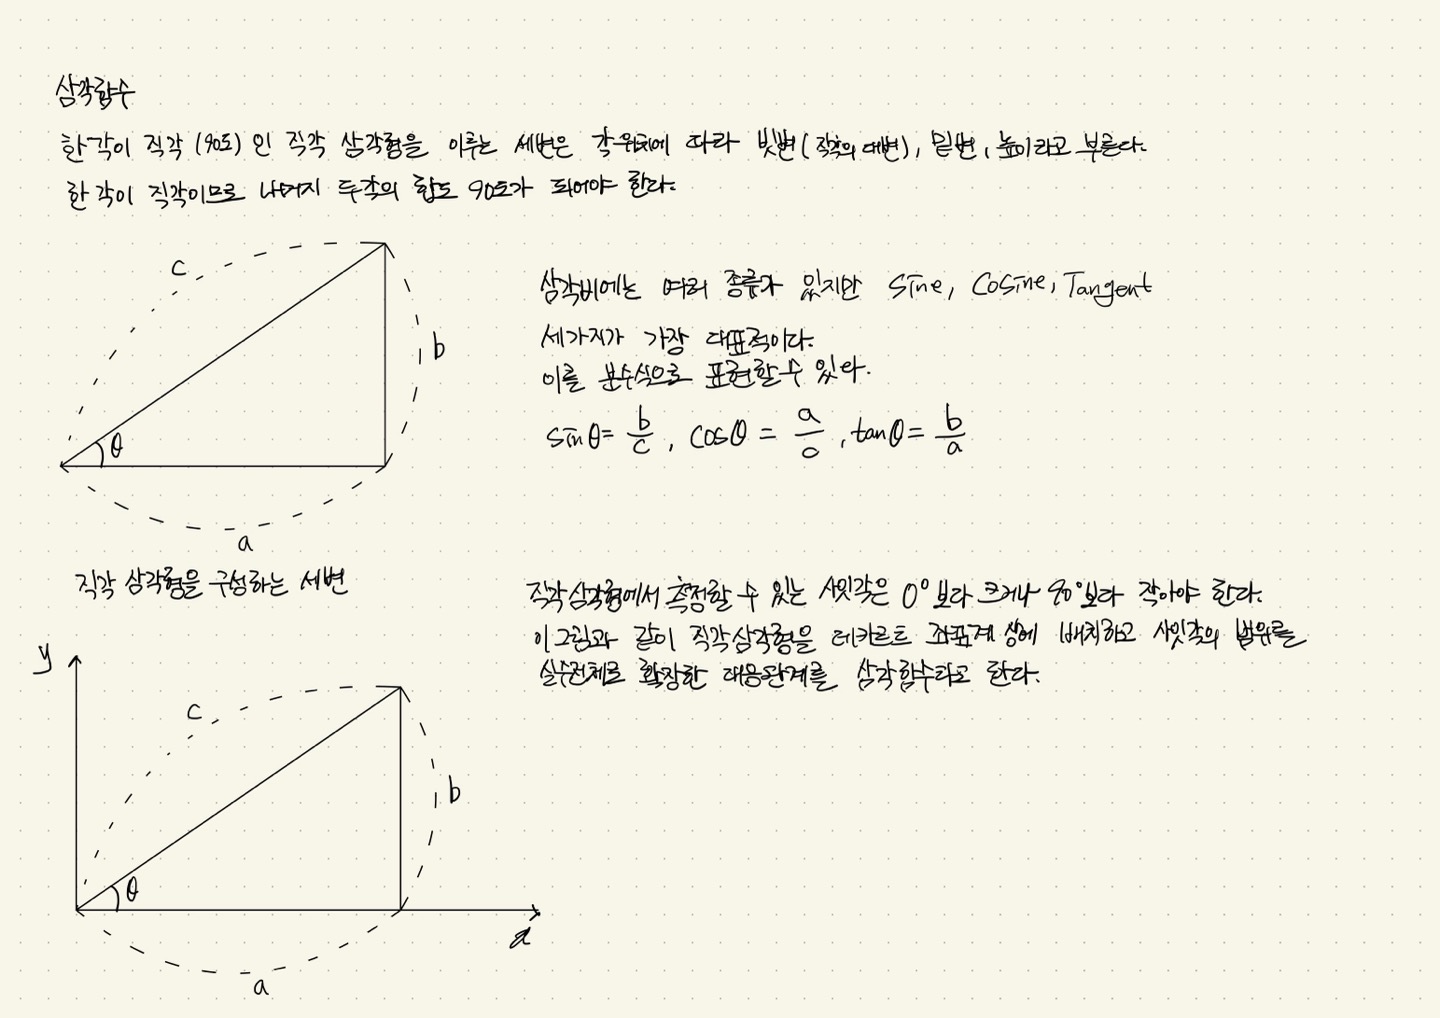 삼각함수
한각이 직각 (90도) 인 직각 삼각형을 이루는 세변은 각위치에 따라 빗변(직각의 대변), 밑변, 높이라고 부른다.
한 각이 직각이므로 나머지 두각의 합도 90도가 되어야 한다.
c
b
θ
a
직각 삼각형을 구성하는 세변
삼각비에는 여러 종류가 있지만 Sine, Cosine, Tangent
세가지가 가장 대표적이다.
이를 분수식으로 표현할수 있다.
sinθ= b/c , cosθ = a/c , tanθ= b/a
직각삼각형에서 측정할 수 있는 사잇각은 0°보다 크거나 90°보다 작아야 한다.
이그림과 같이 직각삼각형을 데카르트 좌표계 상에 배치하고 사잇각의 범위를
실수전체로 확장한 대응관계를 삼각함수라고 한다.
y
c
b
θ
a